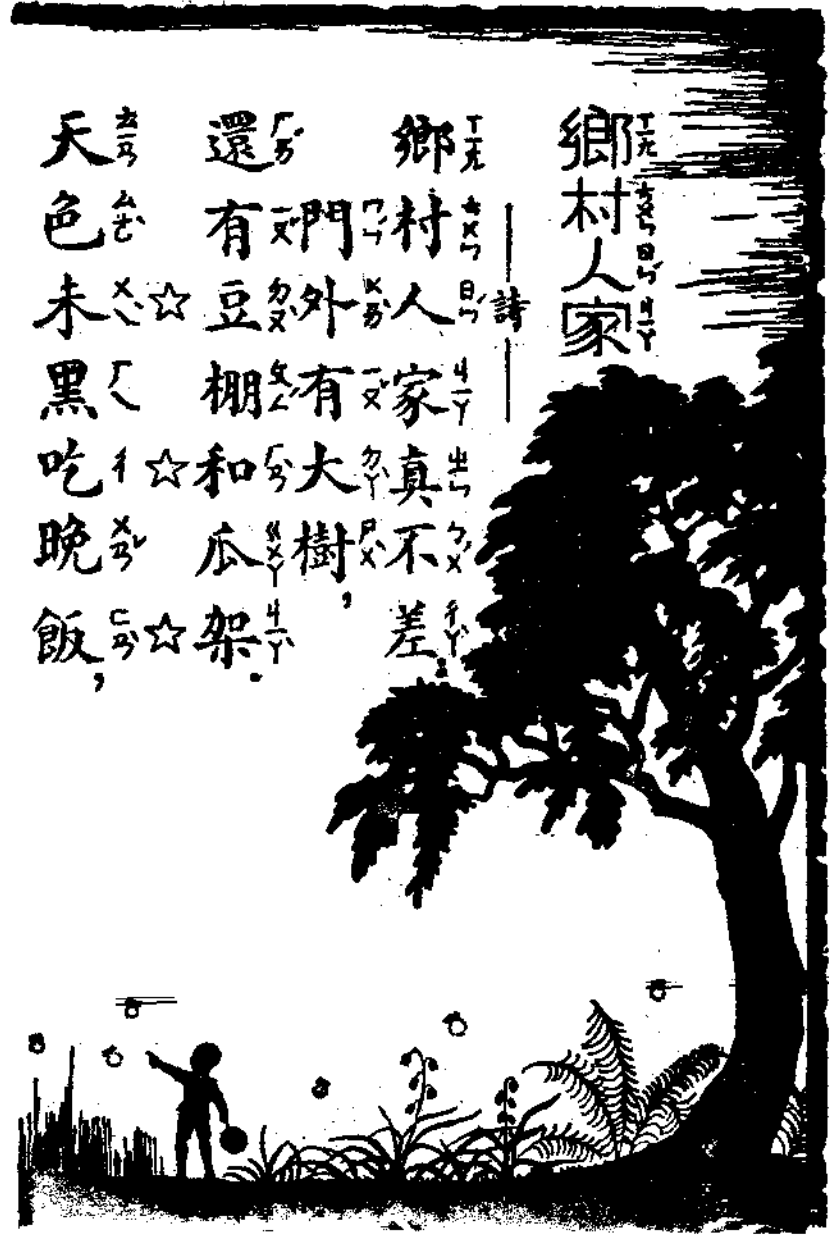 鄉村人家
——詩——
鄉村人家真不差:
門外有大樹,
還有豆棚和瓜架.
☆☆☆
天色未黑吃晚飯,